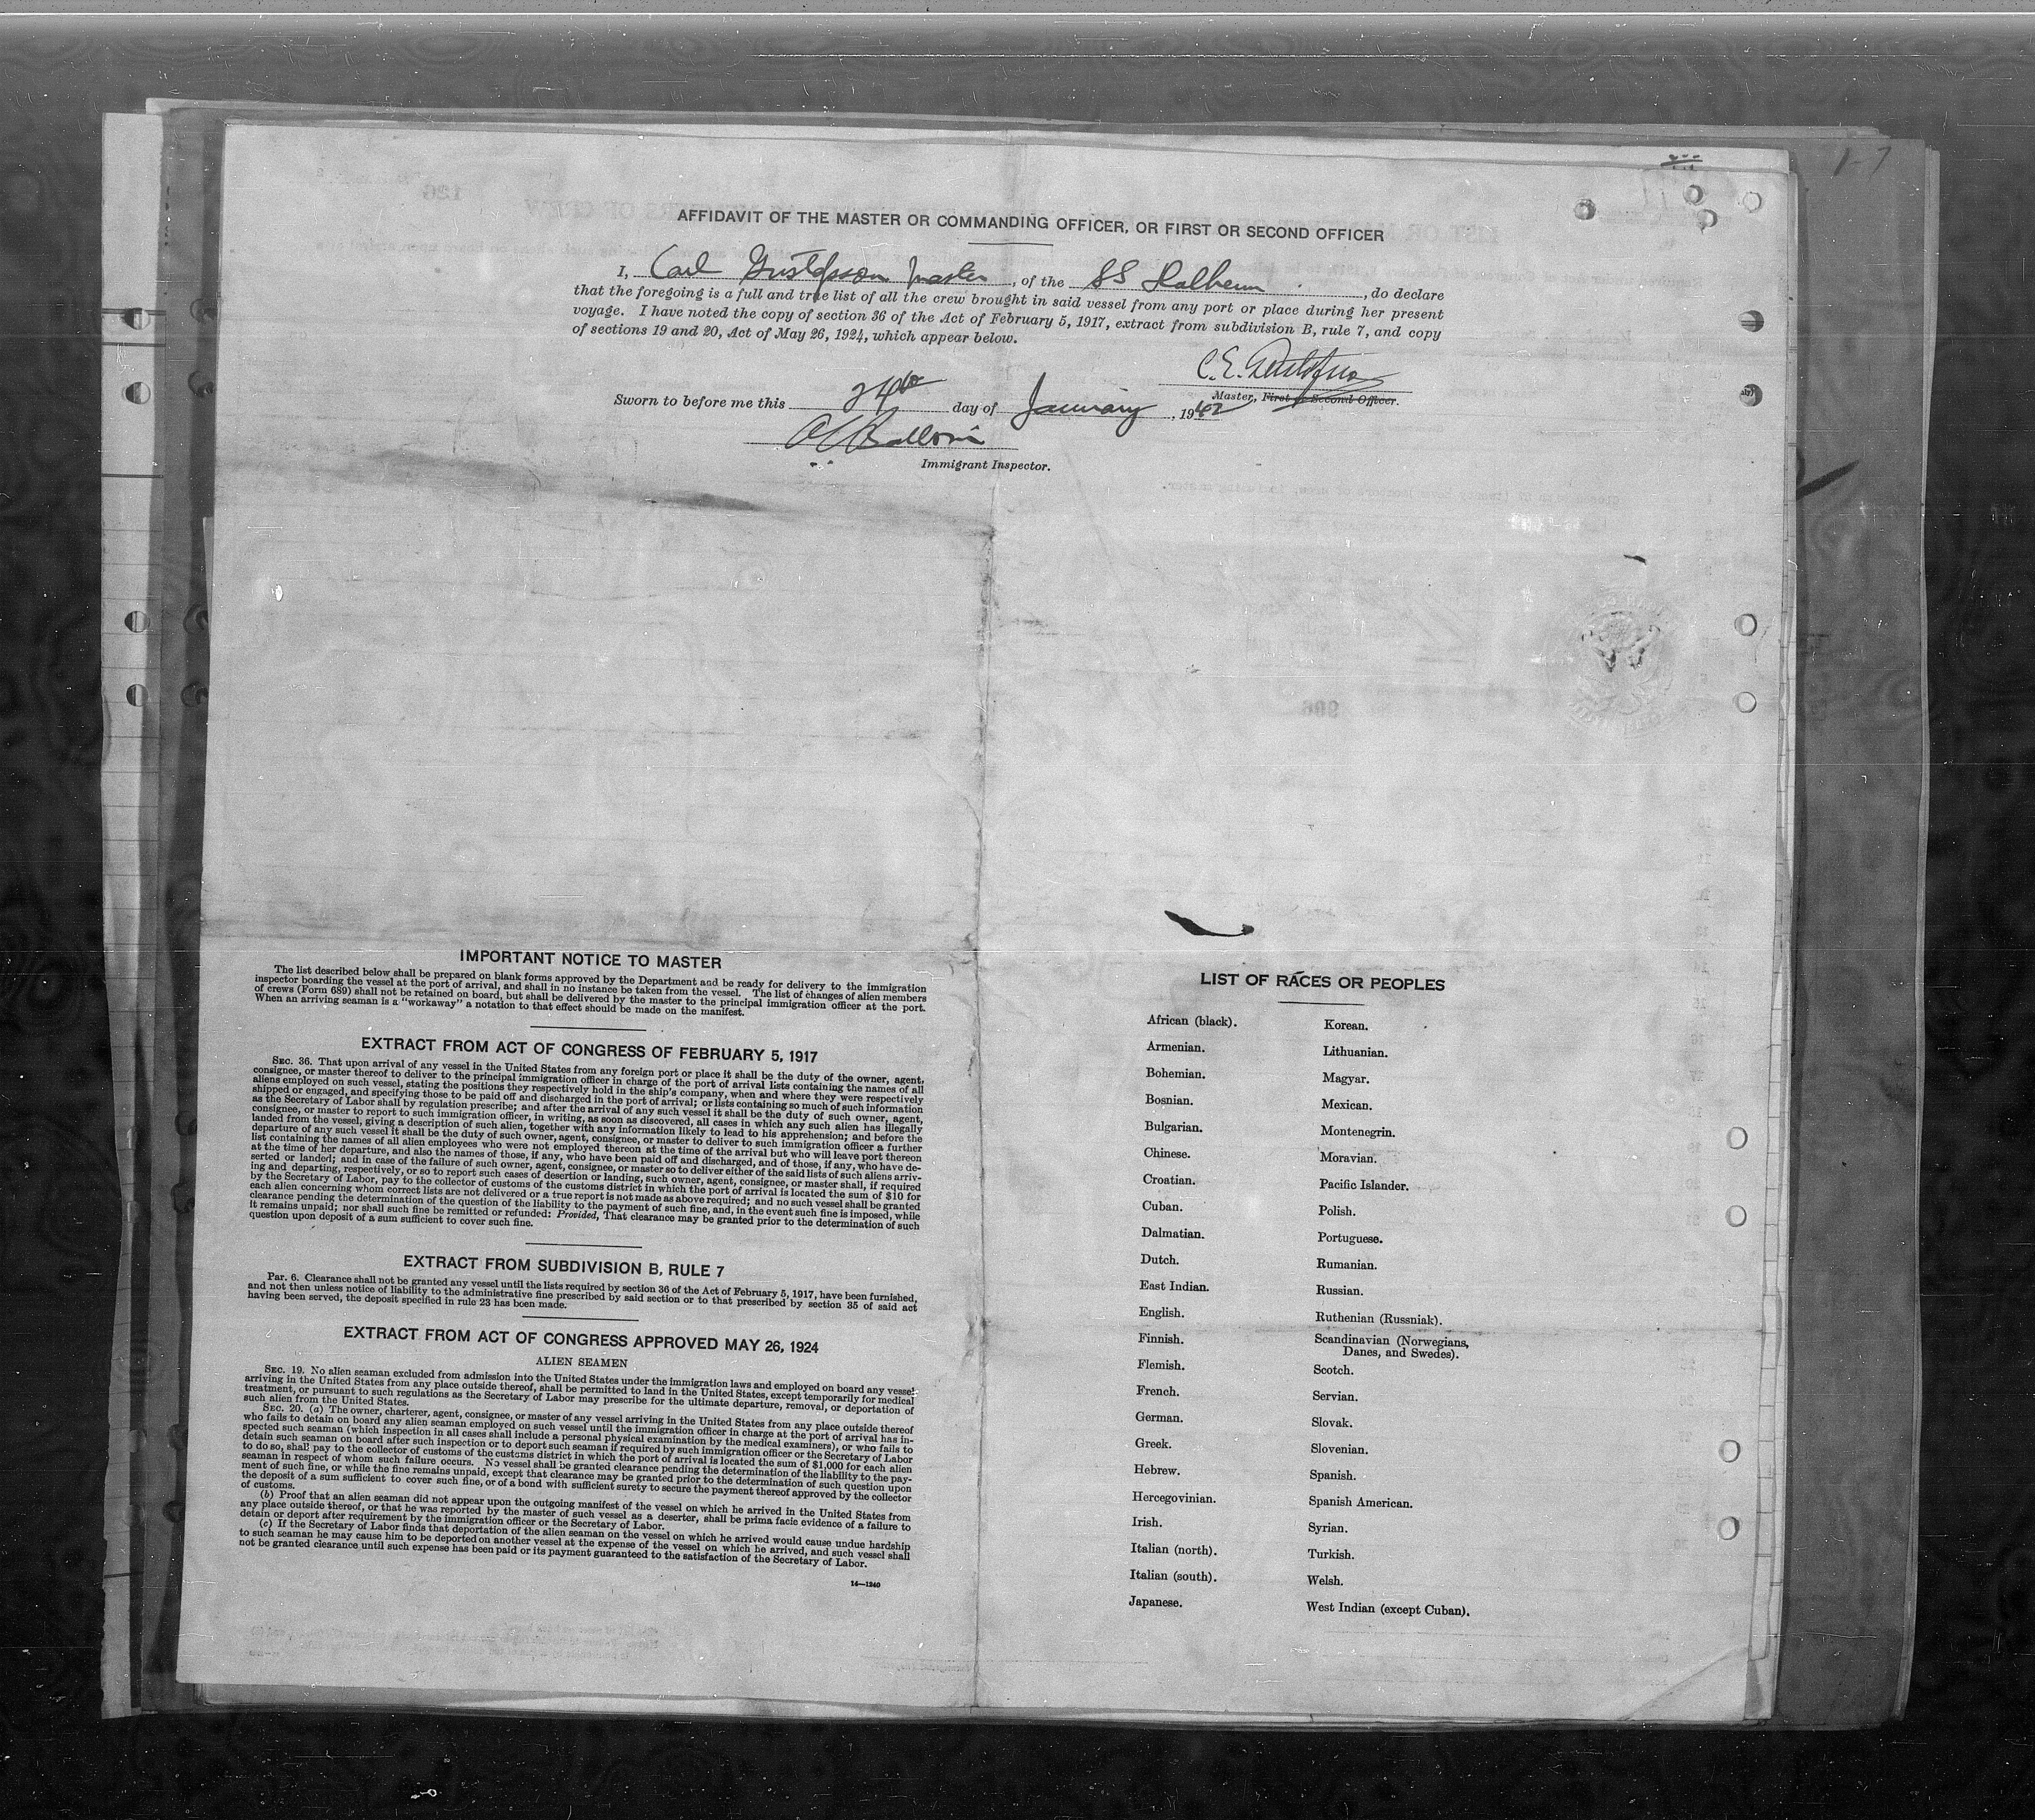 AFFIDAVIT OF THE MASTER OR COMMANDING OFFICER, OR FIRST OR SECOND OFFICER
I, Carl Gustafsson master, of the SS, do declare
that the foregoing is a full and true list of all the crew brought in said vessel from any port or place during her present
voyage. I have noted the copy of section 36 of the Act of February 5, 1917, extract from subdivision B, rule 7, and copy
of sections 19 and 20, Act of May 26, 1924, which appear below.
C. E.
Master, First or Second Officer.
Sworn to before me this 24th day of January, 1942
Immigrant Inspector.
IMPORTANT NOTICE TO MASTER
The list described below shall be prepared on blank forms approved by the Department and be ready for delivery to the immigration
inspector boarding the vessel at the port of arrival, and shall in no instance be taken from the vessel. The list of changes of alien members
of crews (Form 689) shall not be retained on board, but shall be delivered by the master to the principal immigration officer at the port.
When an arriving seaman is a "workaway" a notation to that effect should be made on the manifest.
EXTRACT FROM ACT OF CONGRESS OF FEBRUARY 5, 1917
SEC. 36. That upon arrival of any vessel in the United States from any foreign port or place it shall be the duty of the owner, agent,
consignee, or master thereof to deliver to the principal immigration officer in charge of the port of arrival lists containing the names of all
aliens employed on such vessel, stating the positions they respectively hold in the ship's company, when and where they were respectively
shipped or engaged, and specifying those to be paid off and discharged in the port of arrival; or lists containing so much of such information
as the Secretary of Labor shall by regulation prescribe; and after the arrival of any such vessel it shall be the duty of such owner, agent,
consignee, or master to report to such immigration officer, in writing, as soon as discovered, all cases in which any such alien has illegally
landed from the vessel, giving a description of such alien, together with any information likely to lead to his apprehension; and before the
departure of any such vessel it shall be the duty of such owner, agent, consignee, or master to deliver to such immigration officer a further
list containing the names of all alien employees who were not employed thereon at the time of the arrival but who will leave port thereon
at the time of her departure, and also the names of those, if any, who have been paid off and discharged, and of those, if any, who have de-
serted or landed; and in case of the failure of such owner, agent, consignee, or master so to deliver either of the said lists of such aliens arriv-
ing and departing, respectively, or so to report such cases of desertion or landing, such owner, agent, consignee, or master shall, if required
by the Secretary of Labor, pay to the collector of customs of the customs district in which the port of arrival is located the sum of $10 for
each alien concerning whom correct lists are not delivered or a true report is not made as above required; and no such vessel shall be granted
clearance pending the determination of the question of the liability to the payment of such fine, and, in the event such fine is imposed, while
it remains unpaid; nor shall such fine be remitted or refunded: Provided, That clearance may be granted prior to the determination of such
question upon deposit of a sum sufficient to cover such fine.
EXTRACT FROM SUBDIVISION B, RULE 7
Par. 6. Clearance shall not be granted any vessel until the lists required by section 36 of the Act of February 5, 1917, have been furnished,
and not then unless notice of liability to the administrative fine prescribed by said section or to that prescribed by section 35 of said act
having been served, the deposit specified in rule 23 has been made.
EXTRACT FROM ACT OF CONGRESS APPROVED MAY 26, 1924
ALIEN SEAMEN
SEC. 19. No alien seaman excluded from admission into the United States under the immigration laws and employed on board any vessel
arriving in the United States from any place outside thereof, shall be permitted to land in the United States, except temporarily for medical
treatment, or pursuant to such regulations as the Secretary of Labor may prescribe for the ultimate departure, removal, or deportation of
such alien from the United States.
SEC. 20. (a) The owner, charterer, agent, consignee, or master of any vessel arriving in the United States from any place outside thereof
who fails to detain on board any alien seaman employed on such vessel until the immigration officer in charge at the port of arrival has in-
spected such seaman (which inspection in all cases shall include a personal physical examination by the medical examiners), or who fails to
detain such seaman on board after such inspection or to deport such seaman if required by such immigration officer or the Secretary of Labor
to do so, shall pay to the collector of customs of the customs district in which the port of arrival is located the sum of $1,000 for each alien
seaman in respect of whom such failure occurs. No vessel shall be granted clearance pending the determination of the liability to the pay-
ment of such fine, or while the fine remains unpaid, except that clearance may be granted prior to the determination of such question upon
the deposit of a sum sufficient to cover such fine, or of a bond with sufficient surety to secure the payment thereof approved by the collector
of customs.
(b) Proof that an alien seaman did not appear upon the outgoing manifest of the vessel on which he arrived in the United States from
any place outside thereof, or that he was reported by the master of such vessel as a deserter, shall be prima facie evidence of a failure to
detain or deport after requirement by the immigration officer or the Secretary of Labor.
(c) If the Secretary of Labor finds that deportation of the alien seaman on the vessel on which he arrived would cause undue hardship
to such seaman he may cause him to be deported on another vessel at the expense of the vessel on which he arrived, and such vessel shall
not be granted clearance until such expense has been paid or its payment guaranteed to the satisfaction of the Secretary of Labor.
14—1240
LIST OF RACES OR PEOPLES
African (black).
Armenian.
Bohemian.
Bosnian.
Bulgarian.
Chinese.
Croatian.
Cuban.
Dalmatian.
Dutch.
East Indian.
English.
Finnish.
Flemish.
French.
German.
Greek.
Hebrew.
Hercegovinian.
Irish.
Italian (north).
Italian (south).
Japanese.
Korean.
Lithuanian.
Magyar.
Mexican.
Montenegrin.
Moravian.
Pacific Islander.
Polish.
Portuguese.
Rumanian.
Russian.
Ruthenian (Russniak).
Scandinavian (Norwegians,
Danes, and Swedes).
Scotch.
Servian.
Slovak.
Slovenian.
Spanish.
Spanish American.
Syrian.
Turkish.
Welsh.
West Indian (except Cuban).